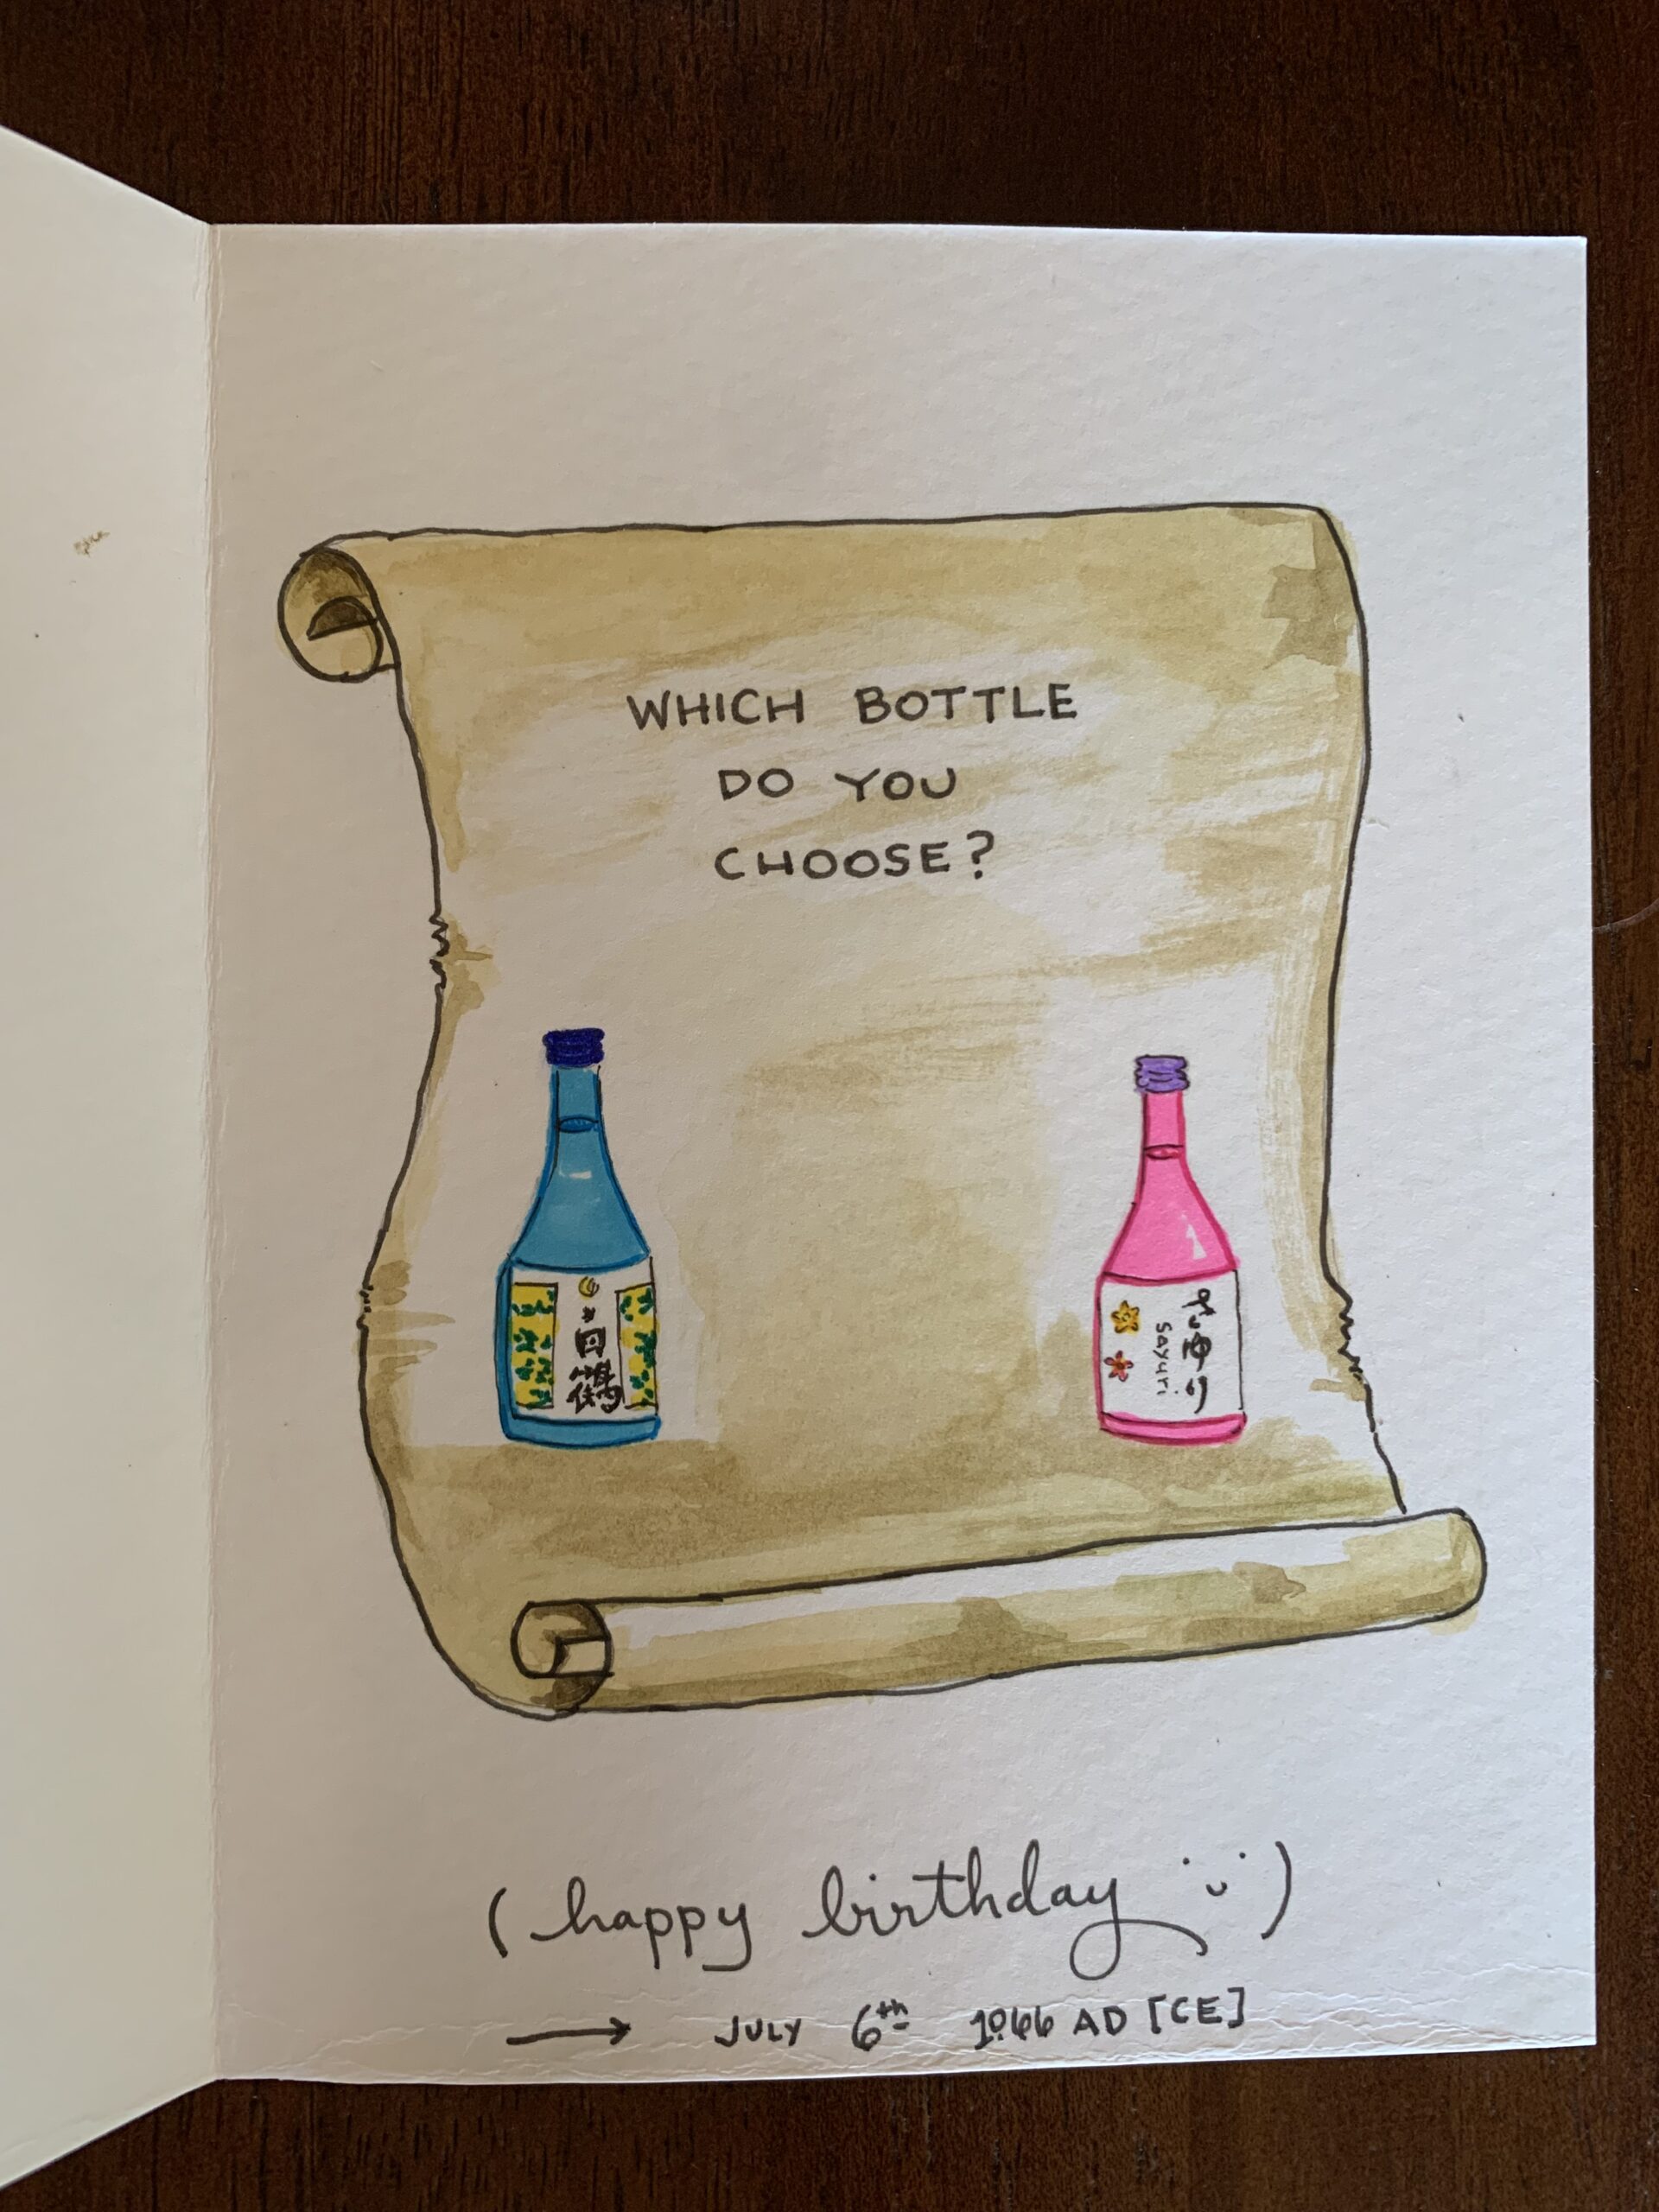 WHICH BOTTLE
DO YOU
CHOOSE?
Sayuri
(happy birthday :))
→ JULY 6th 1066 AD [CE]